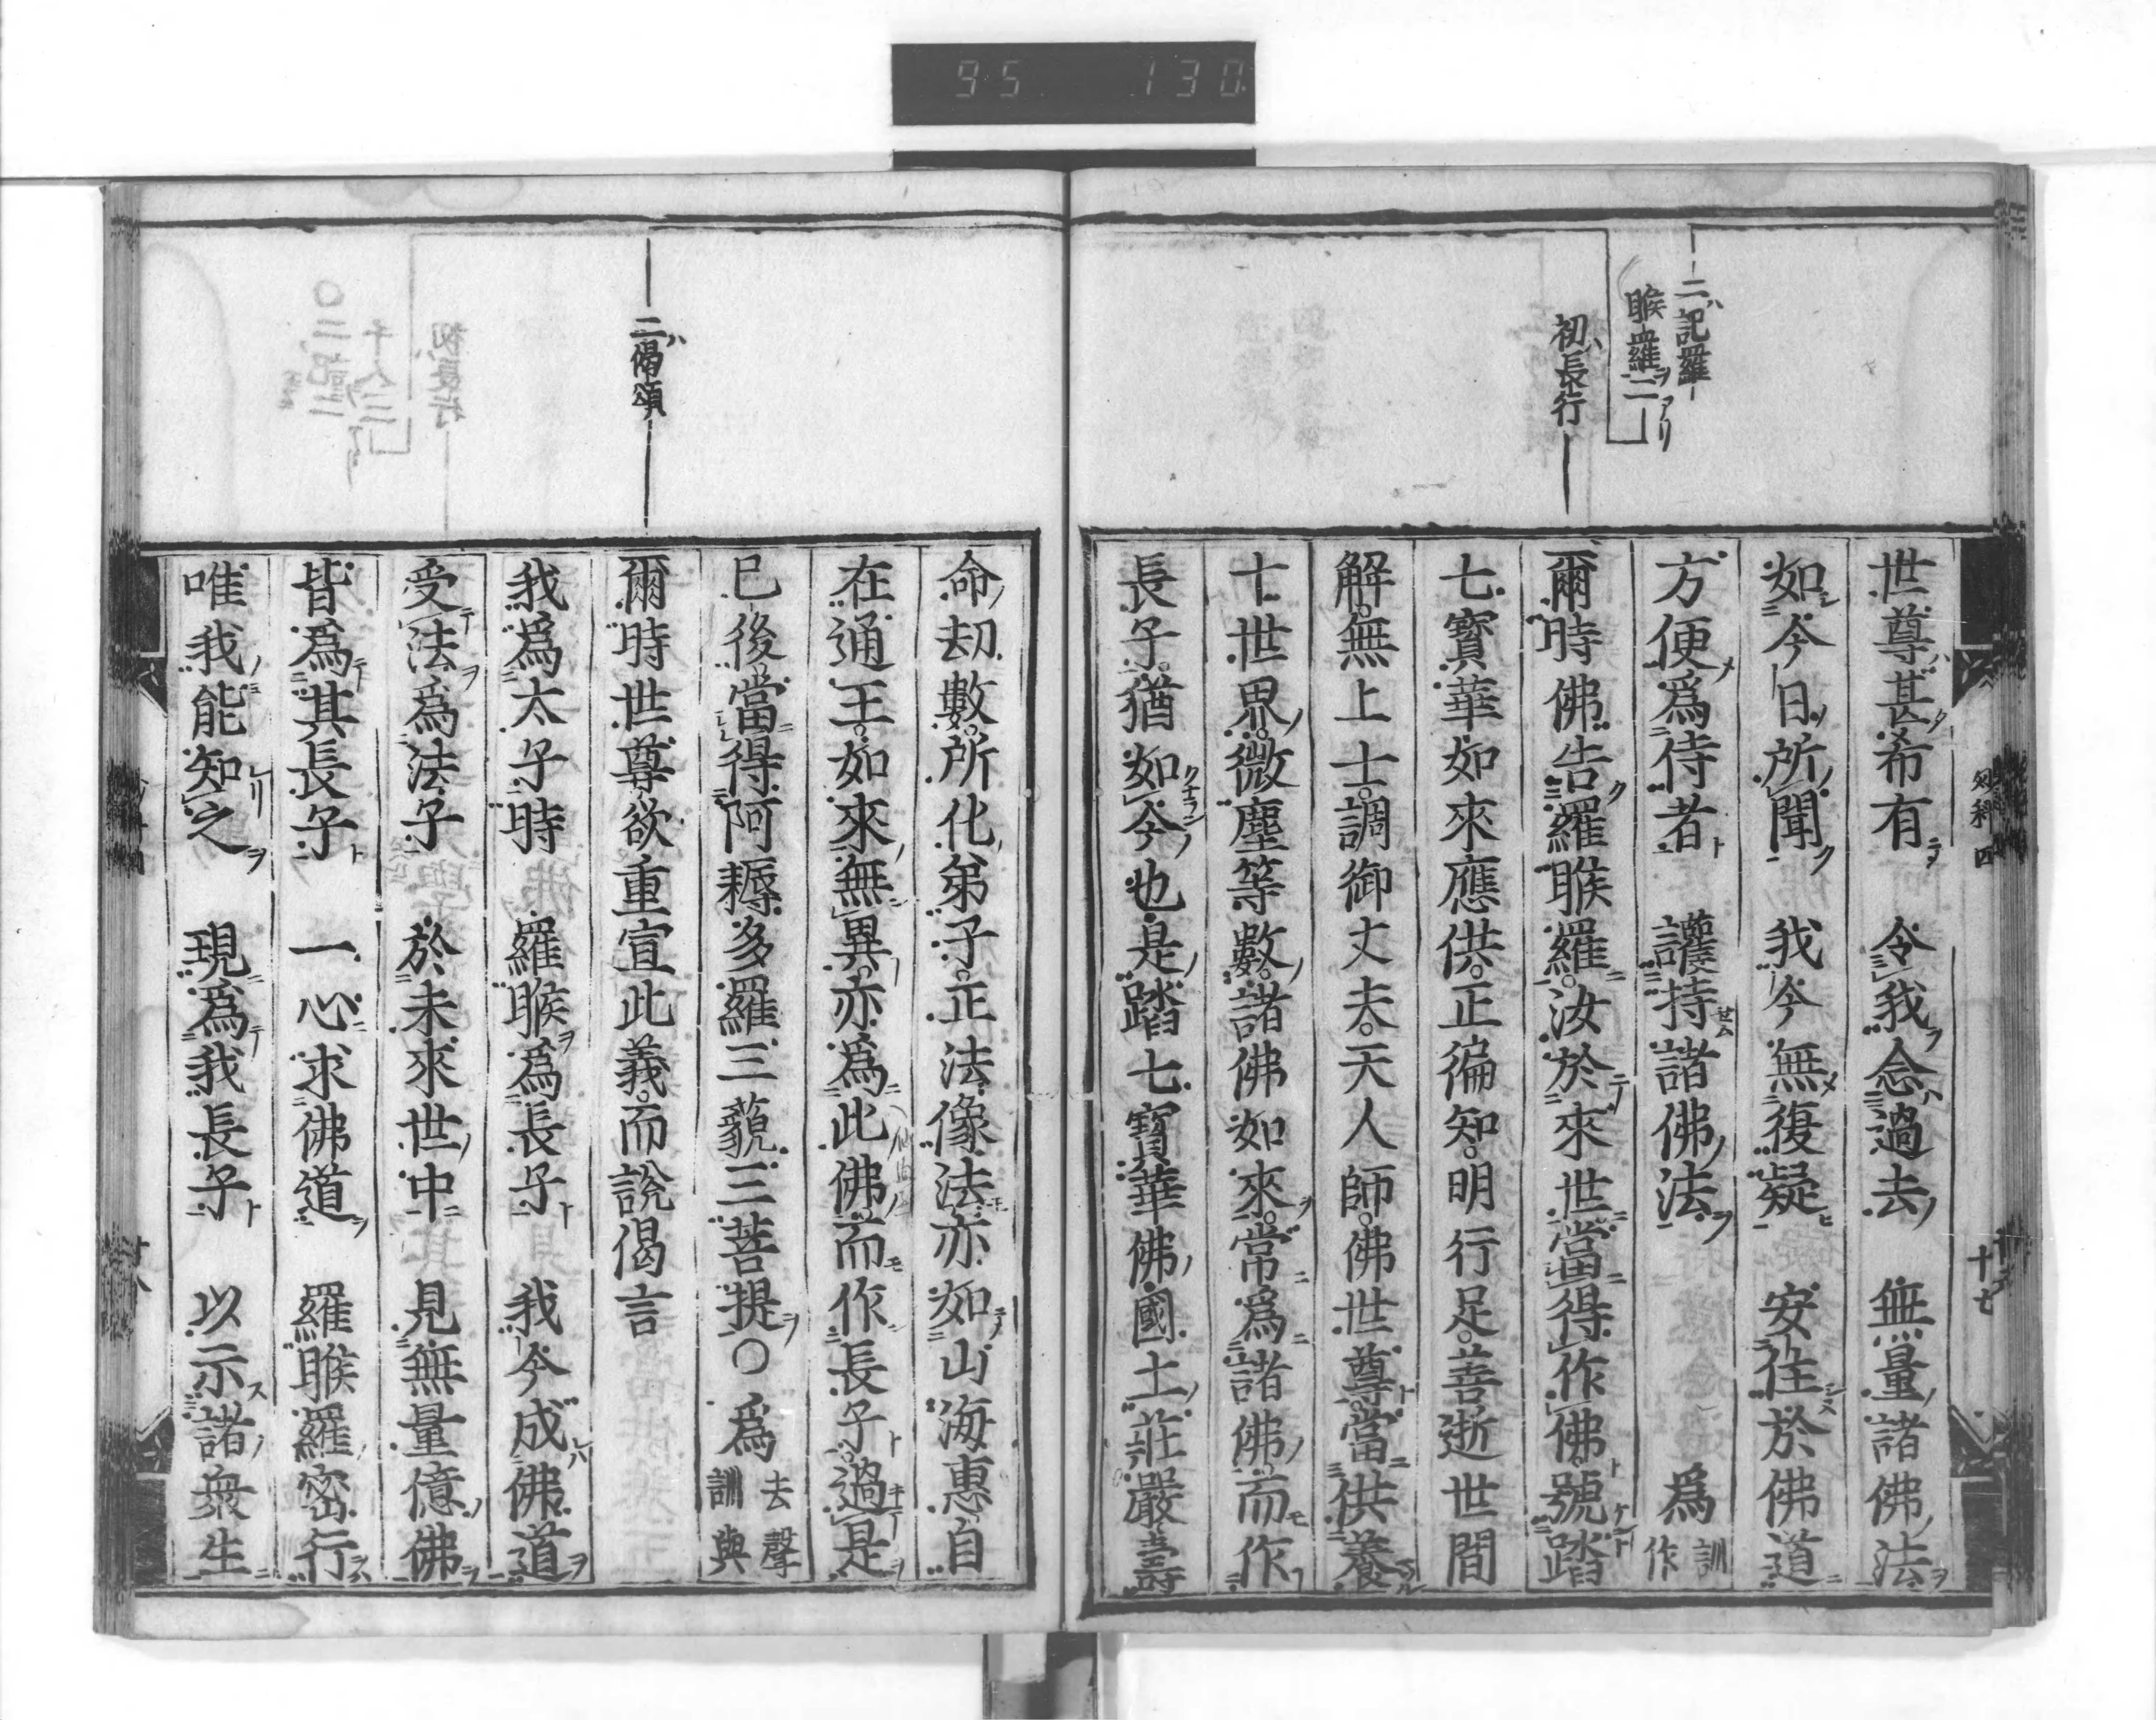 95 130
二記羅
睺羅二
初長行
世尊甚希有 令我念過去 無量諸佛法
如今日所聞 我今無復疑 安住於佛道
方便爲侍者 護持諸佛法 爲訓作
爾時佛告羅睺羅。汝於來世當得作佛。號踏
七寶華如來應供。正徧知。明行足。善逝世間
解。無上士。調御丈夫。天人師。佛世尊。當供養
十世界。微塵等數。諸佛如來。常爲諸佛。而作
長子。猶如今也。是踏七寶華佛。國土莊嚴壽
科四
十七
二偈頌
命劫數。所化弟子。正法像法亦如山海惠自
在通王。如來無異。亦爲此佛。而作長子。過是
已後當得阿耨多羅三藐三菩提〇爲去聲訓與
爾時世尊欲重宣此義。而說偈言
我爲太子時 羅睺爲長子 我今成佛道
受法爲法子 於未來世中 見無量億佛
皆爲其長子 一心求佛道 羅睺羅密行
唯我能知之 現爲我長子 以示諸衆生